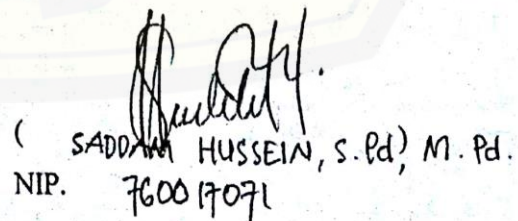 ( SADDAM HUSSEIN, S.Pd) M.Pd.
NIP. 760017071